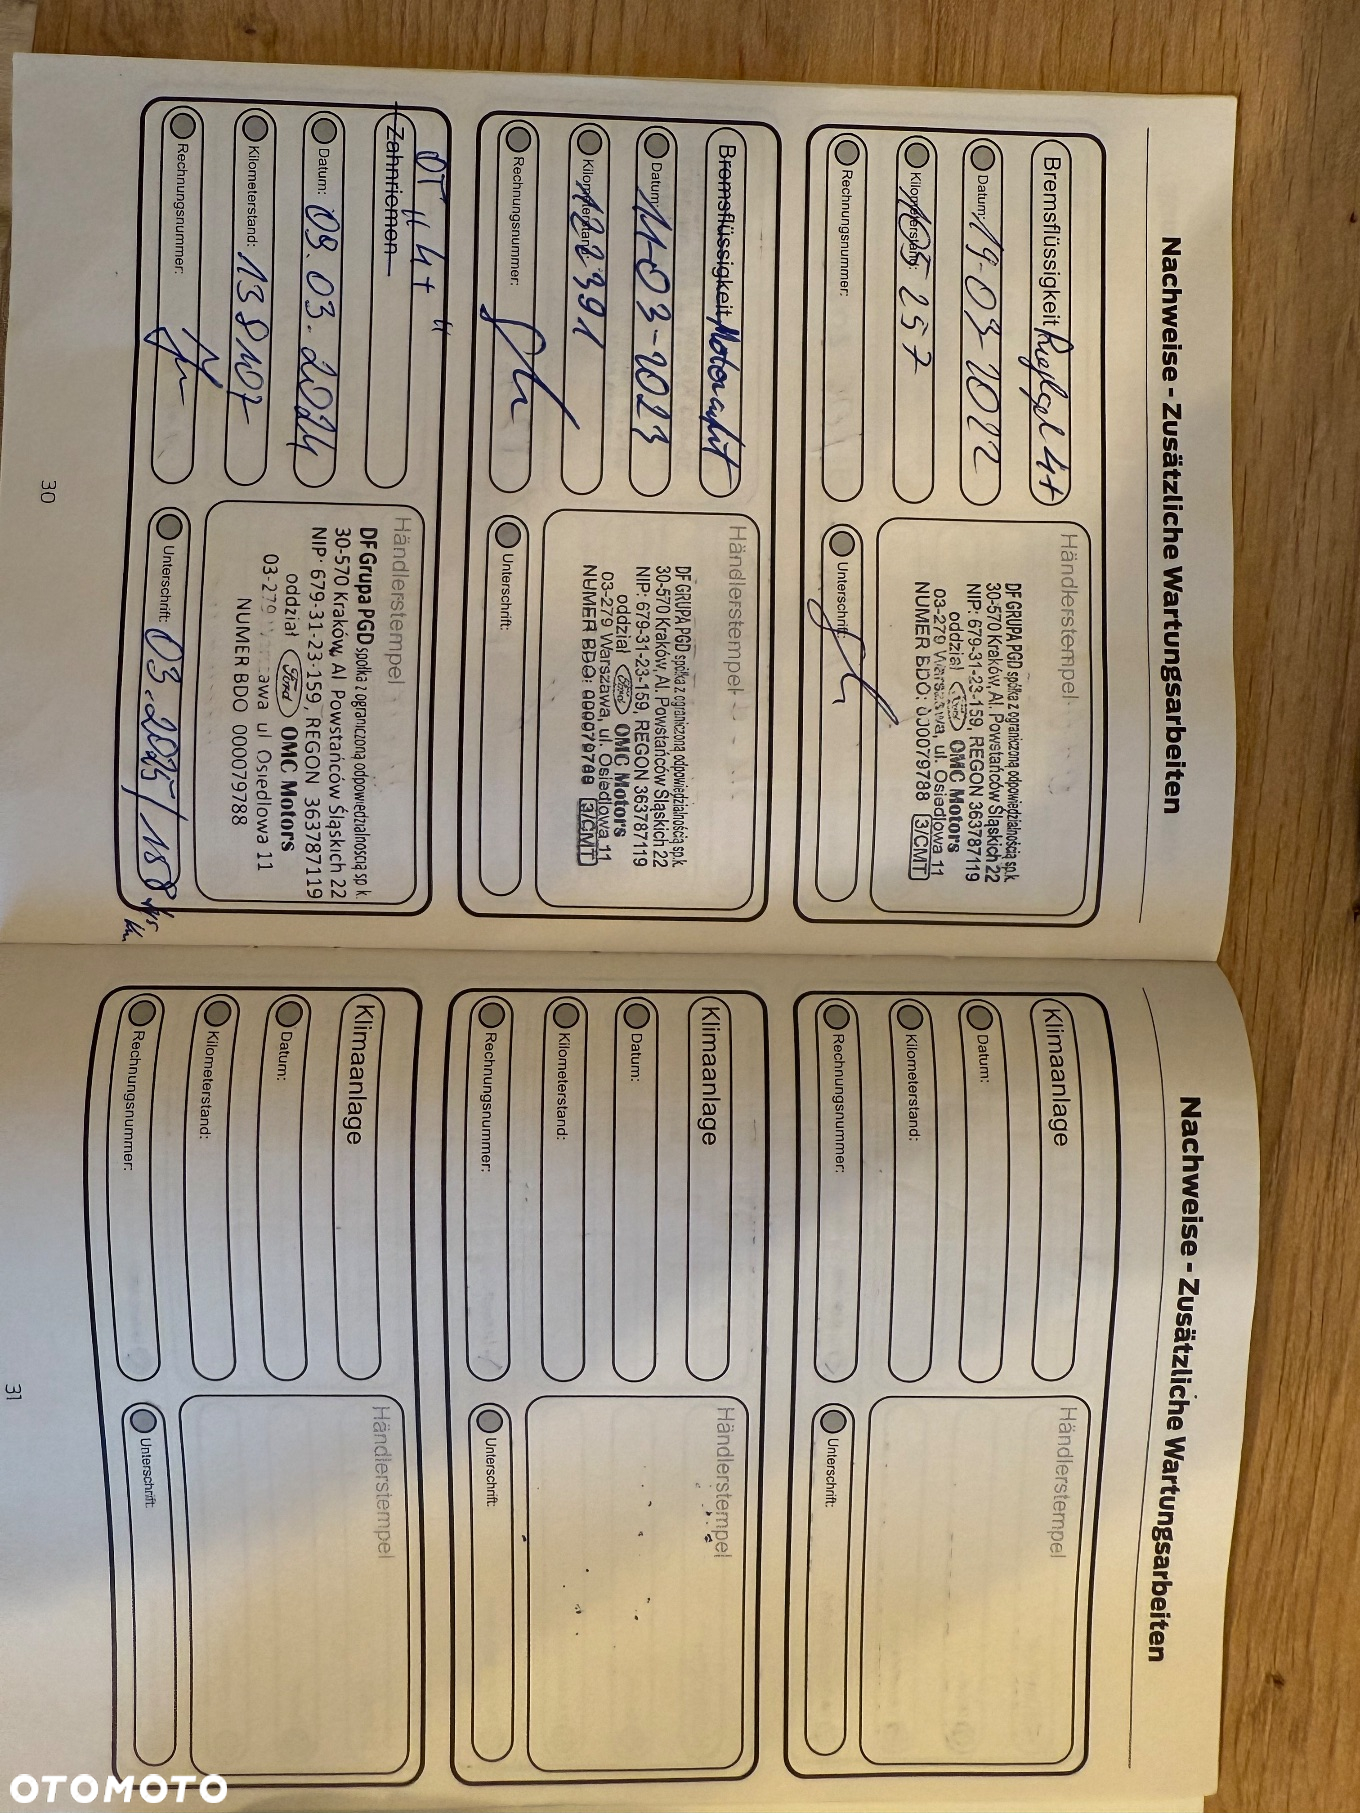 Nachweise - Zusätzliche Wartungsarbeiten
Bremsflüssigkeit Przegląd 4+
Datum: 19-03-2022
Kilometerstand: 105 257
Rechnungsnummer:
Händlerstempel
DF GRUPA PGD spółka z ograniczoną odpowiedzialnością sp.k.
30-570 Kraków, Al. Powstańców Śląskich 22
NIP: 679-31-23-159, REGON 363787119
oddział Ford OMC Motors
03-279 Warszawa, ul. Osiedlowa 11
NUMER BDO: 000079788 3/CMT
Unterschrift:
Bremsflüssigkeit
Datum: 11-03-2023
Kilometerstand: 122391
Rechnungsnummer:
Händlerstempel
DF GRUPA PGD spółka z ograniczoną odpowiedzialnością sp.k.
30-570 Kraków, Al. Powstańców Śląskich 22
NIP: 679-31-23-159, REGON 363787119
oddział Ford OMC Motors
03-279 Warszawa, ul. Osiedlowa 11
NUMER BDO: 000079788 3/CMT
Unterschrift:
OT "4+"
Zahnriemen
Datum: 09.03.2024
Kilometerstand: 138107
Rechnungsnummer:
Händlerstempel
DF Grupa PGD spółka z ograniczoną odpowiedzialnością sp k.
30-570 Kraków, Al Powstańców Śląskich 22
NIP: 679-31-23-159, REGON 363787119
oddział Ford OMC Motors
03-279 ul Osiedlowa 11
NUMER BDO 000079788
Unterschrift: 03.2025/158
30
Nachweise - Zusätzliche Wartungsarbeiten
Klimaanlage
Datum:
Kilometerstand:
Rechnungsnummer:
Händlerstempel
Unterschrift:
Klimaanlage
Datum:
Kilometerstand:
Rechnungsnummer:
Händlerstempel
Unterschrift:
Klimaanlage
Datum:
Kilometerstand:
Rechnungsnummer:
Händlerstempel
Unterschrift:
31
OTOMOTO